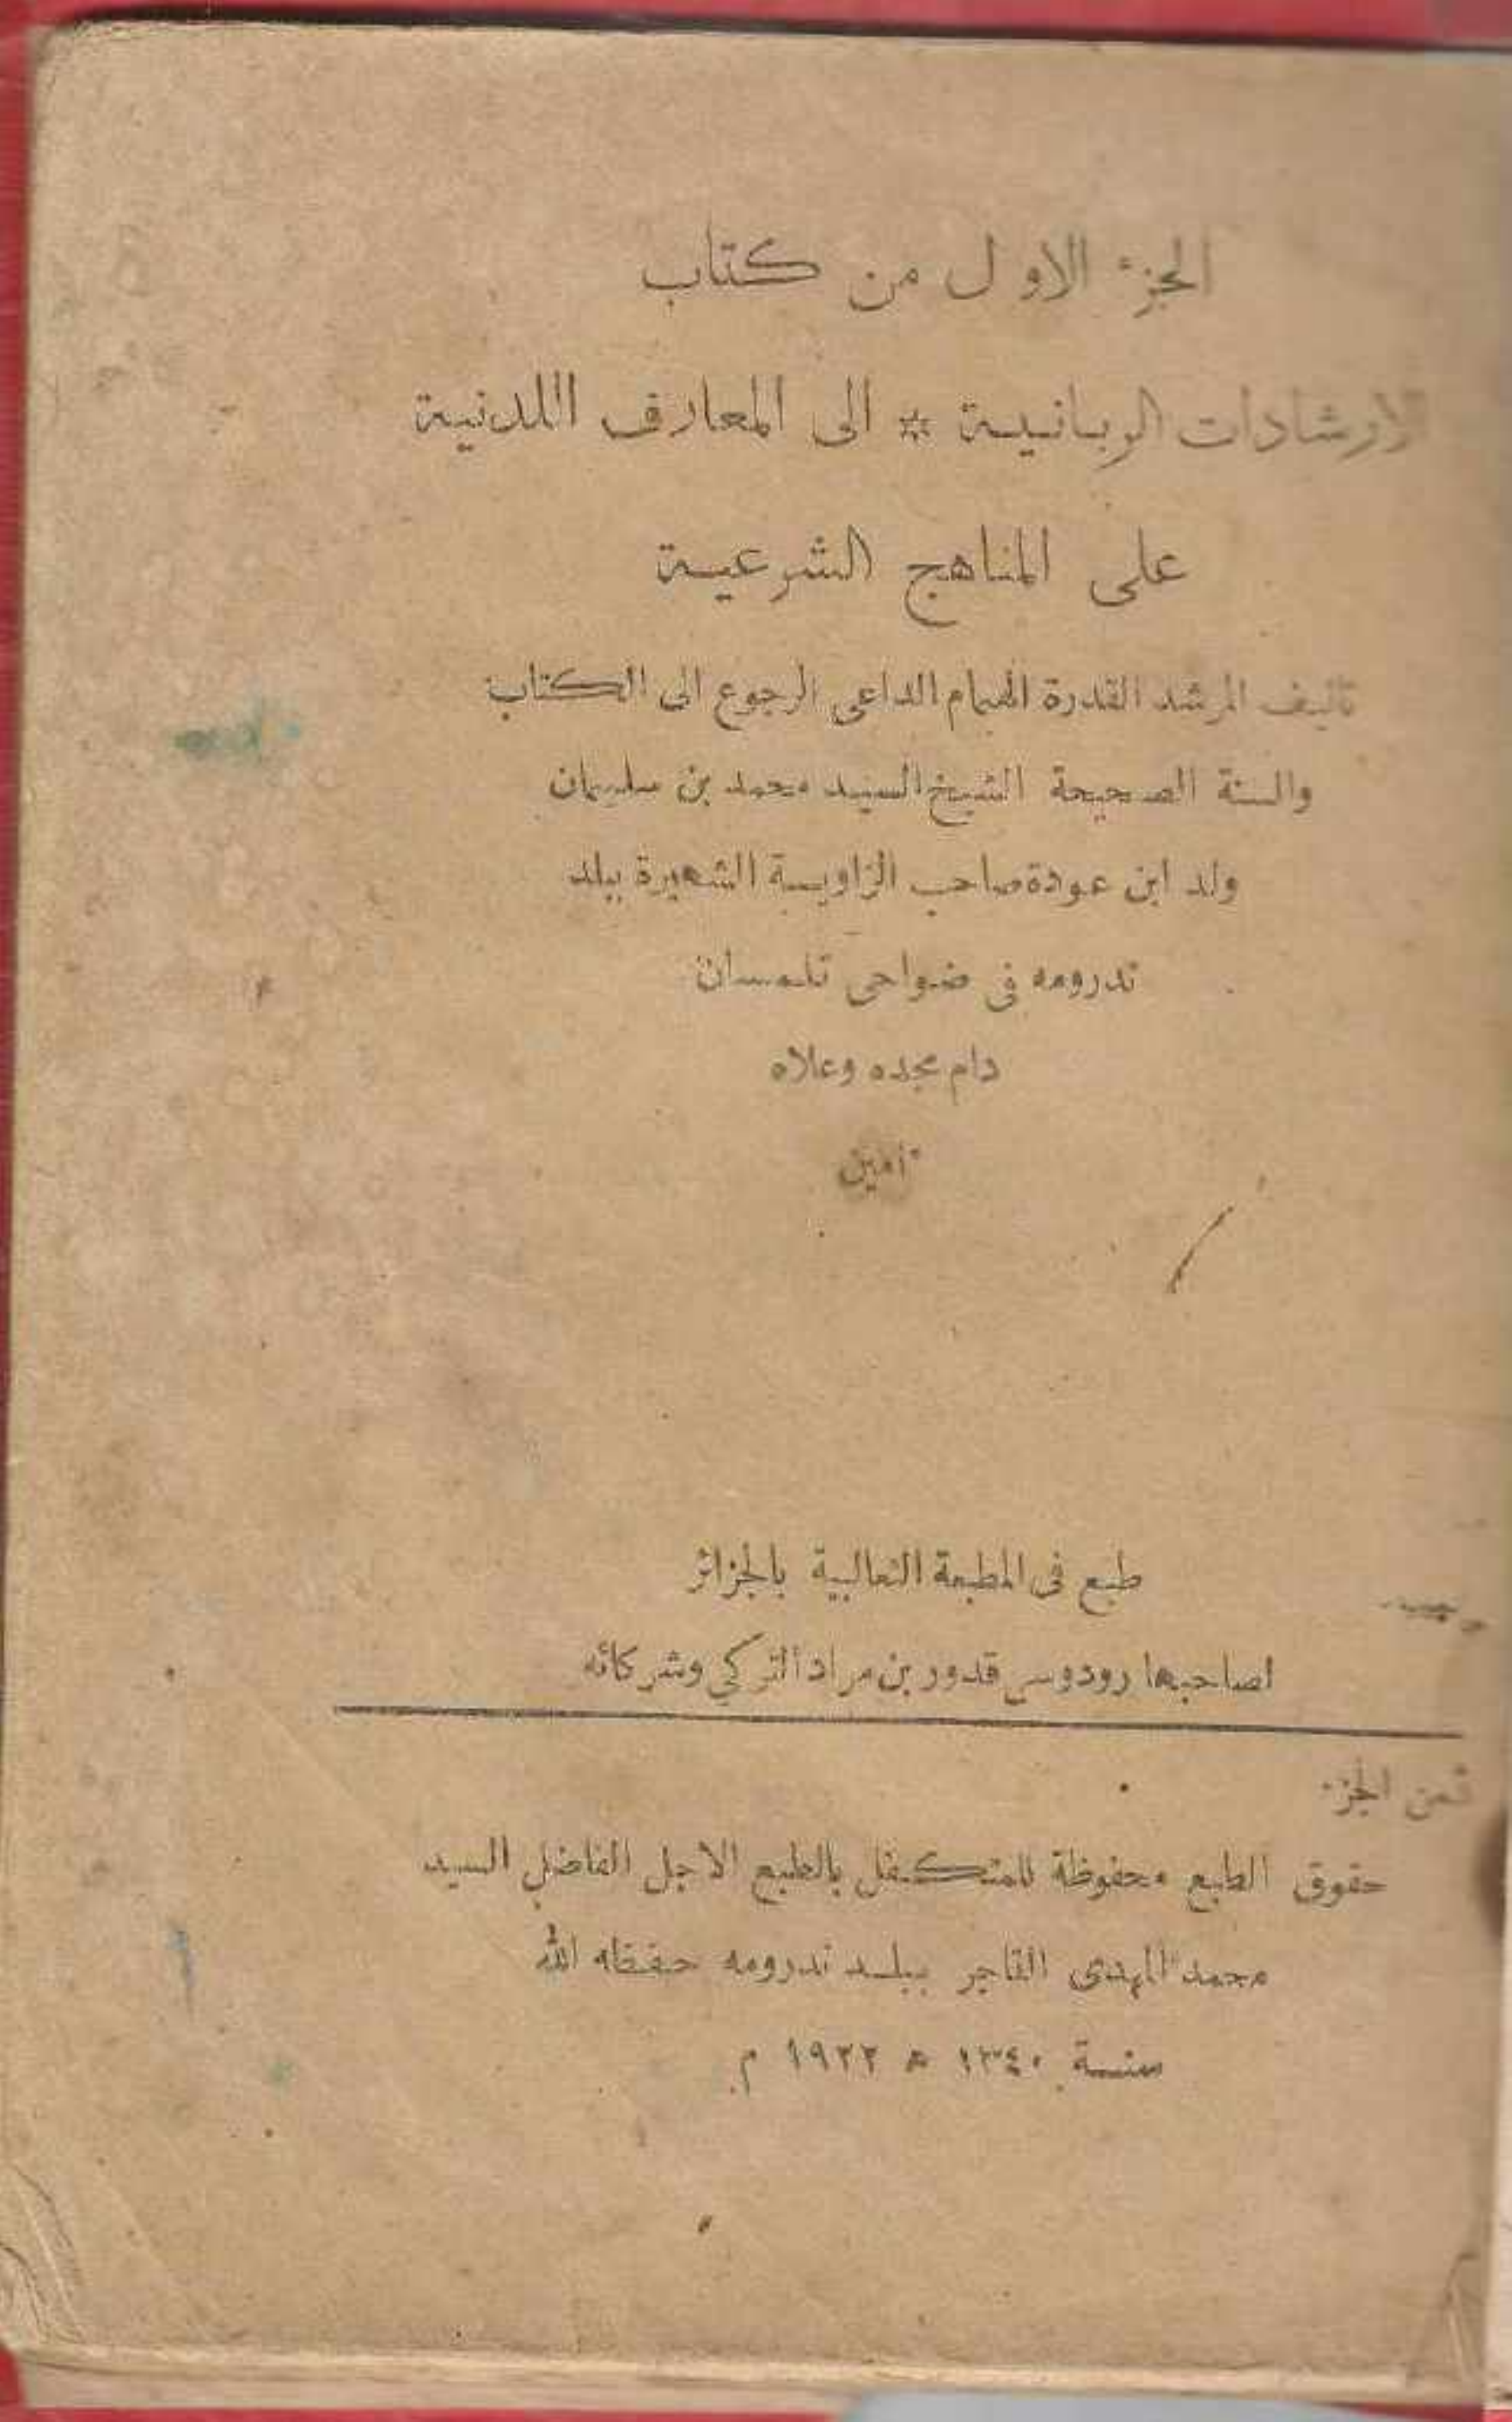 الجزء الاول من كتاب
الارشادات الربانية * الى المعارف اللدنية
على المناهج الشرعية
تأليف المرشد القدوة الهمام الداعى الرجوع الى الكتاب
والسنة الصحيحة الشيخ السيد محمد بن سليمان
ولد ابن عودة صاحب الزاوية الشهيرة ببلد
ندرومه في ضواحى تلمسان
دام مجده وعلاه
ءامين
طبع فى المطبعة الثعالبية بالجزائر
لصاحبها رودوسي قدور بن مراد التركي وشركائه
ثمن الجزء
حقوق الطبع محفوظة للمتكفل بالطبع الاجل الفاضل السيد
محمد المهدى التاجر ببلد ندرومه حفظه الله
سنة ١٣٤٠ ه ١٩٢٢ م